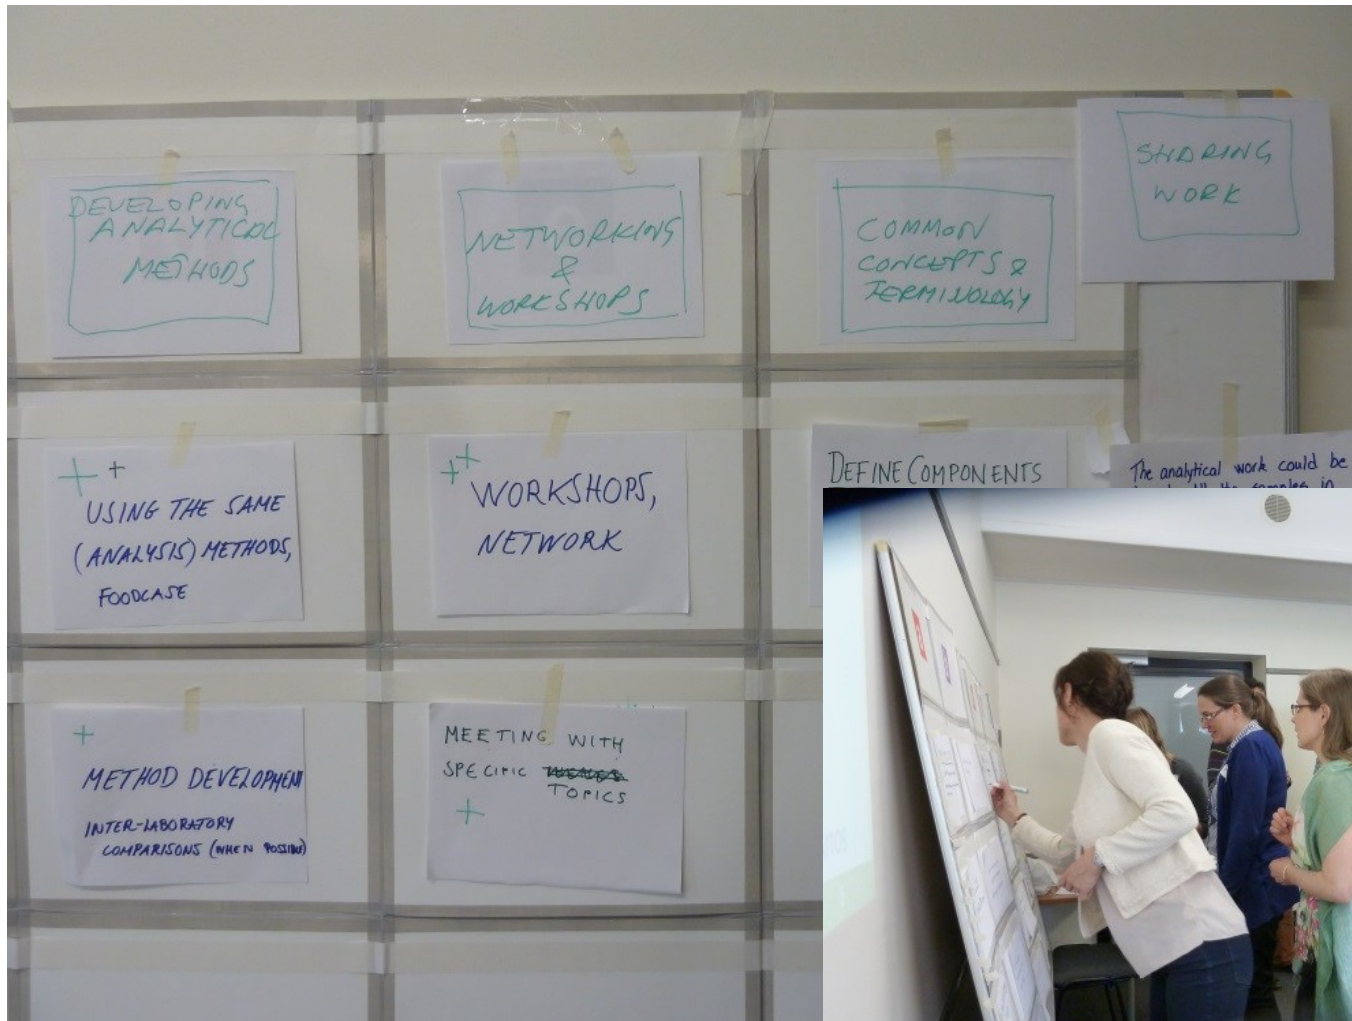 DEVELOPING
ANALYTICAL
METHODS
NETWORKING
&
WORKSHOPS
COMMON
CONCEPTS &
TERMINOLOGY
SHARING
WORK
USING THE SAME
(ANALYSIS) METHODS,
FOODCASE
WORKSHOPS,
NETWORK
DEFINE COMPONENTS
The analytical work could be
samples in
METHOD DEVELOPMENT
INTER-LABORATORY
COMPARISONS (WHEN POSSIBLE)
MEETING WITH
SPECIFIC
TOPICS